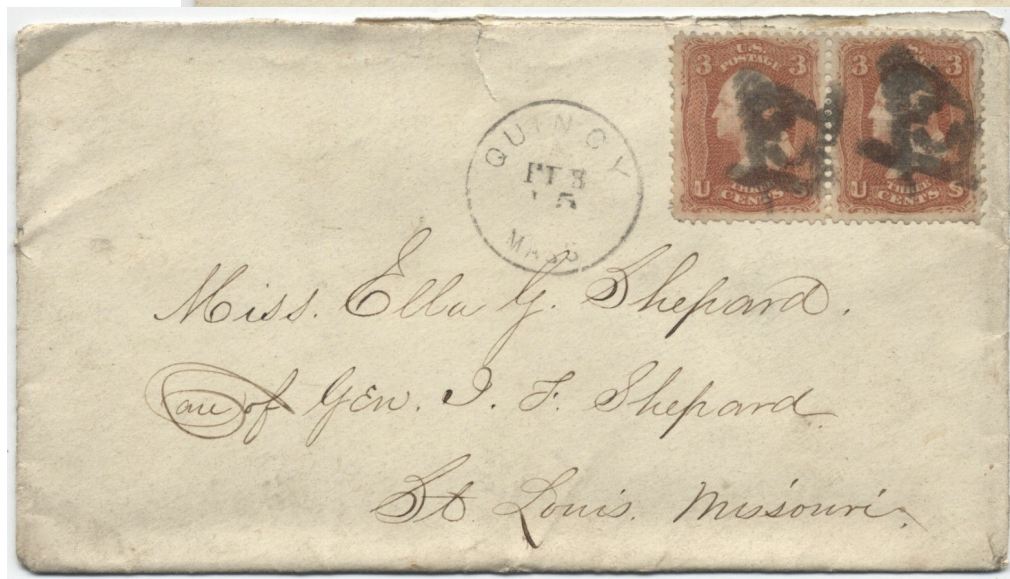 U.S. POSTAGE
3 3
THREE
U CENTS S
U.S. POSTAGE
3 3
THREE
U CENTS S
QUINCY
FEB
15
MASS
Miss. Ella G. Shepard.
Care of Gen. I. F. Shepard
St Louis. Missouri.